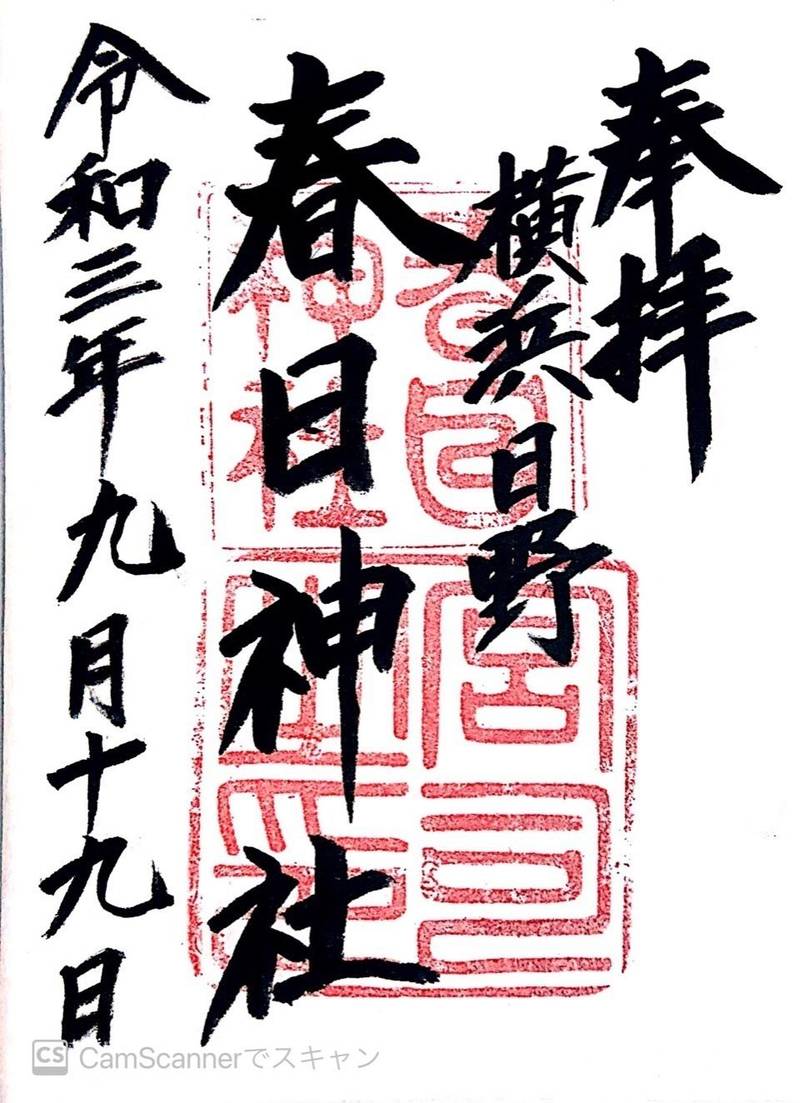 奉拝
横浜日野
春日神社
令和三年九月十九日
春日
神社
宮司
之印
CS CamScannerでスキャン